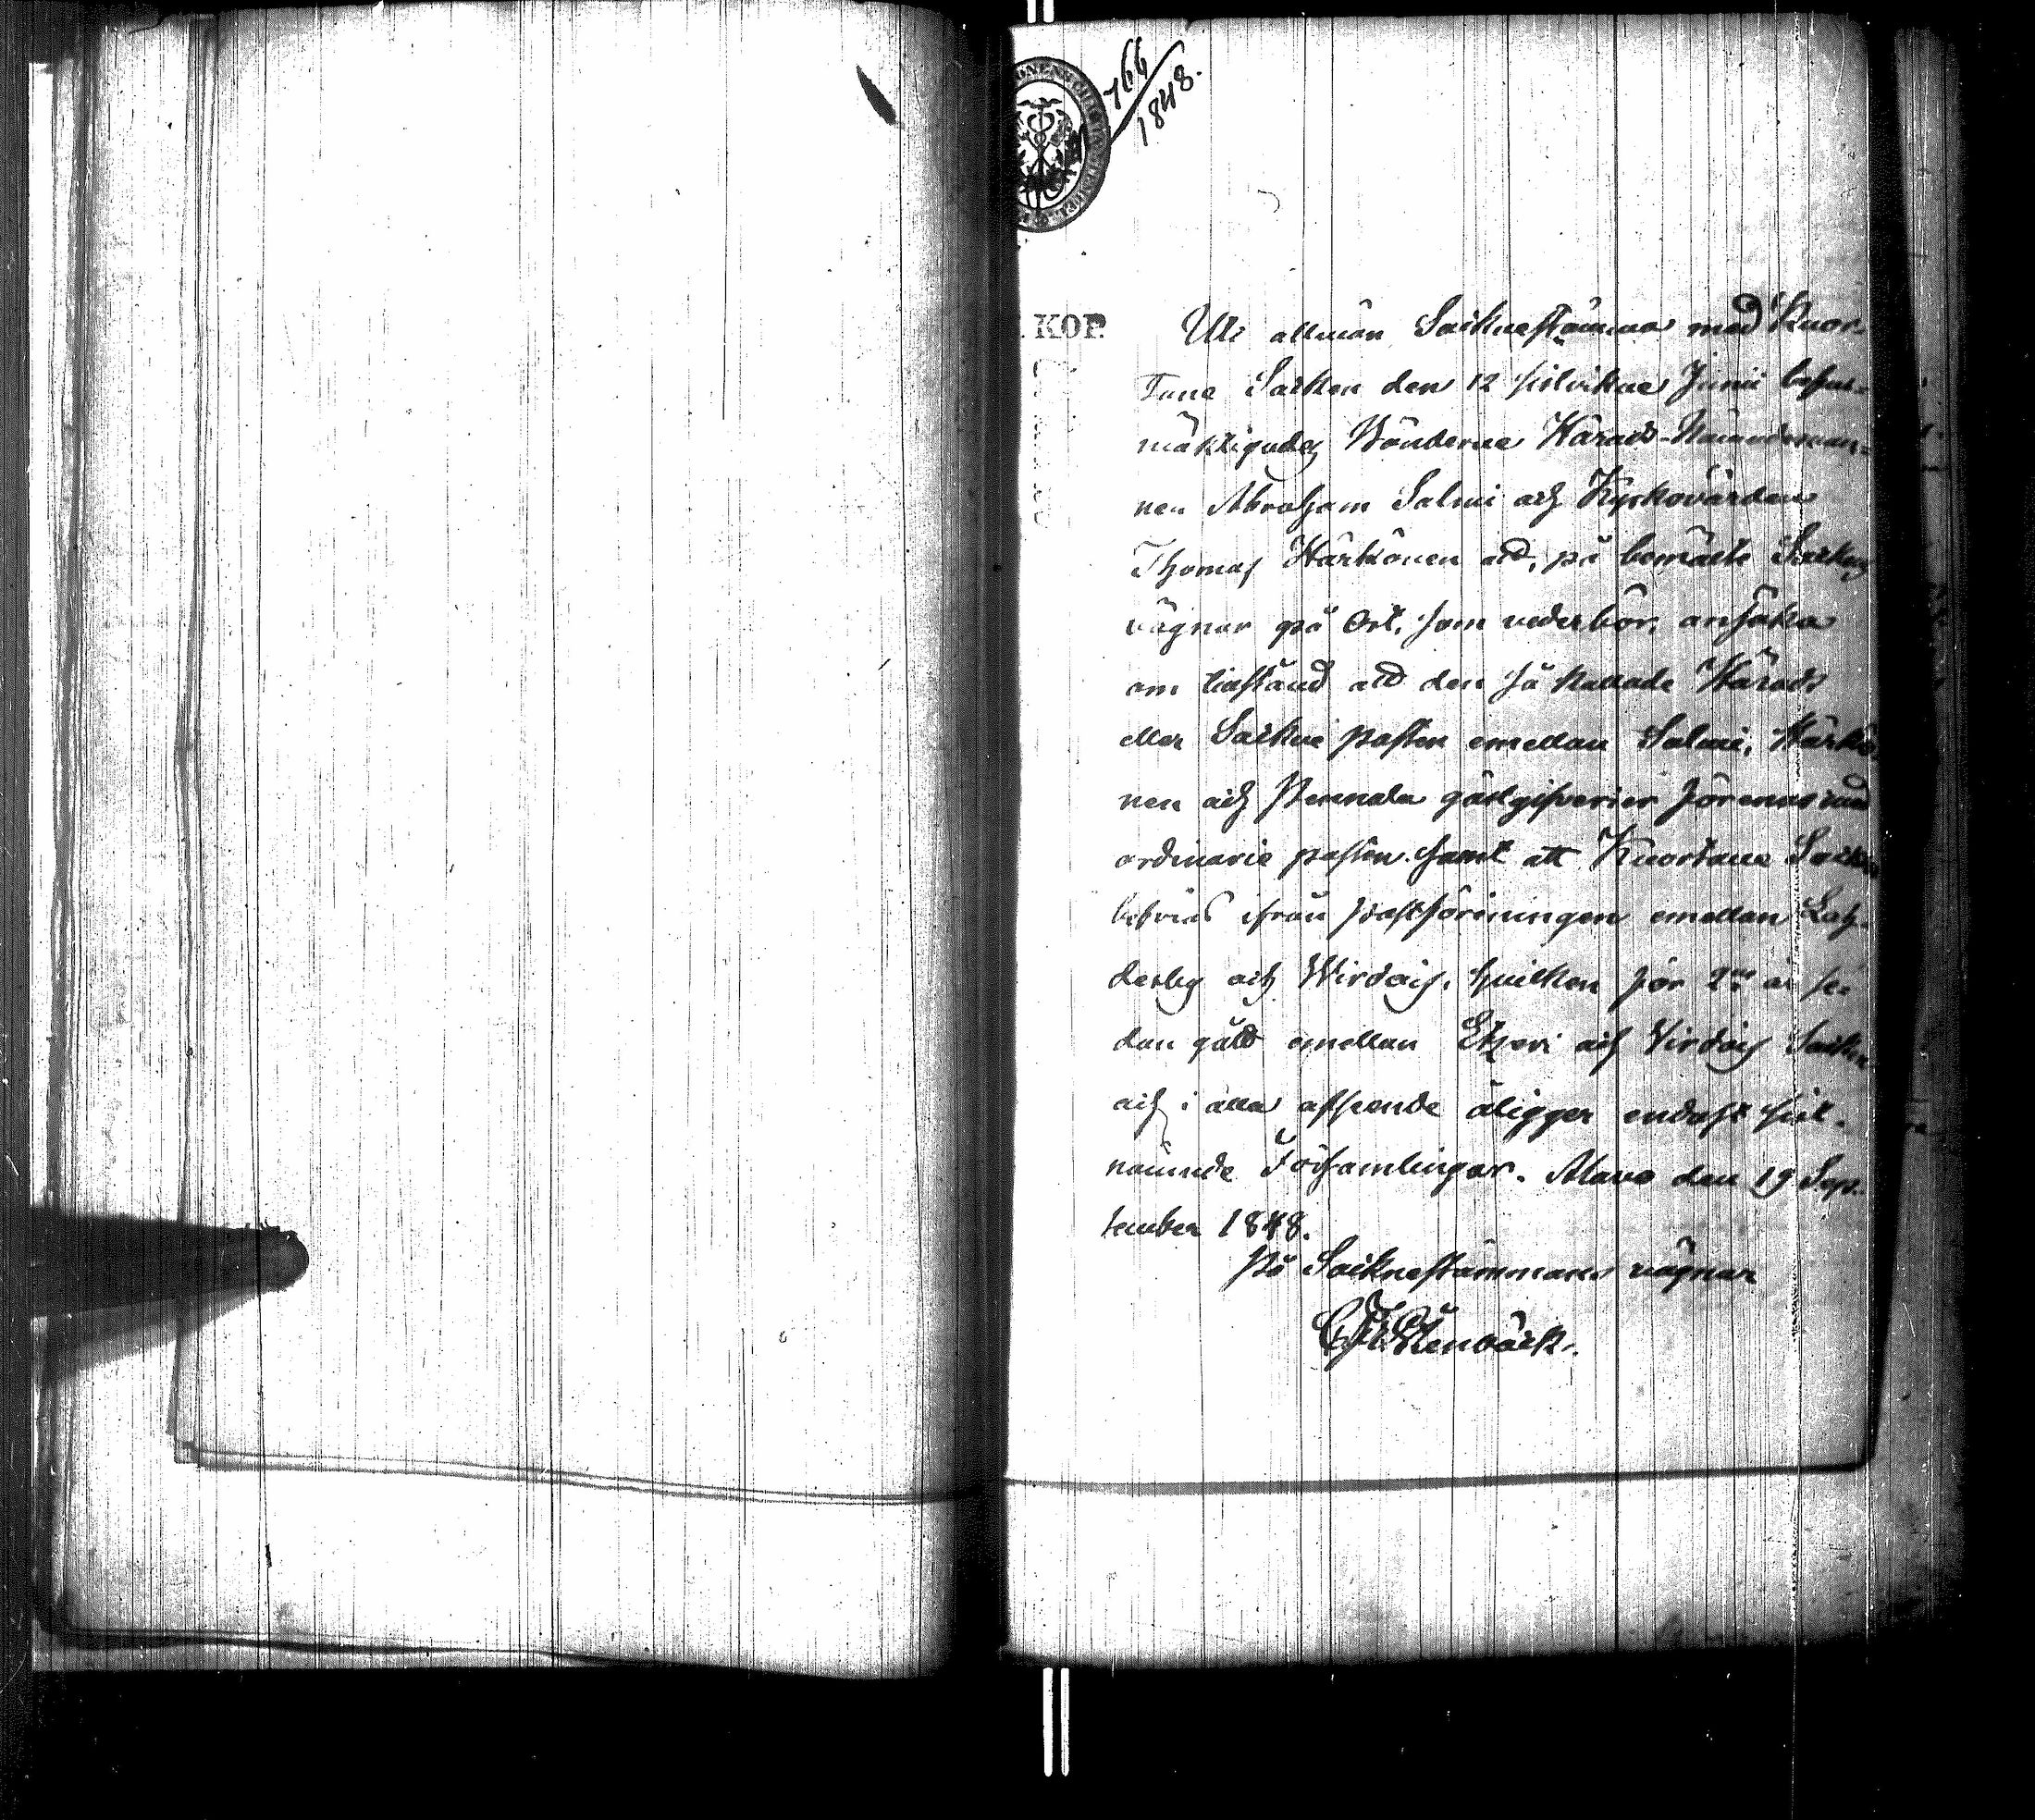 766
1848.
KOP.
Uti allmän Socknestämma med Kuor-
tane Socken den 12 sistvikne Junii befull-
mäktigades Bönderne Härads-Nämndeman-
nen Abraham Salmi och Kyrkovärden
Thomas Härkönen att, på bemälte Sockens
vägnar på Ort, som vederbör, ansöka
om tillstånd att den så kallade Härads
eller Sockne posten emellan Salmi, Härkö-
nen och Pennala gästgifverier förenas med
ordinarie posten samt att Kuortane Socken
befrias ifrån Postföringen emellan
och Wirdois, hvilken för 2ne år se-
dan gått emellan Etzeri och Virdois Socken
och i alla afseende åligger endast sist-
nämnde Församlingar. Alavo den 19 Sep-
tember 1848.
På Socknestämmans vägnar
Stenbäck.